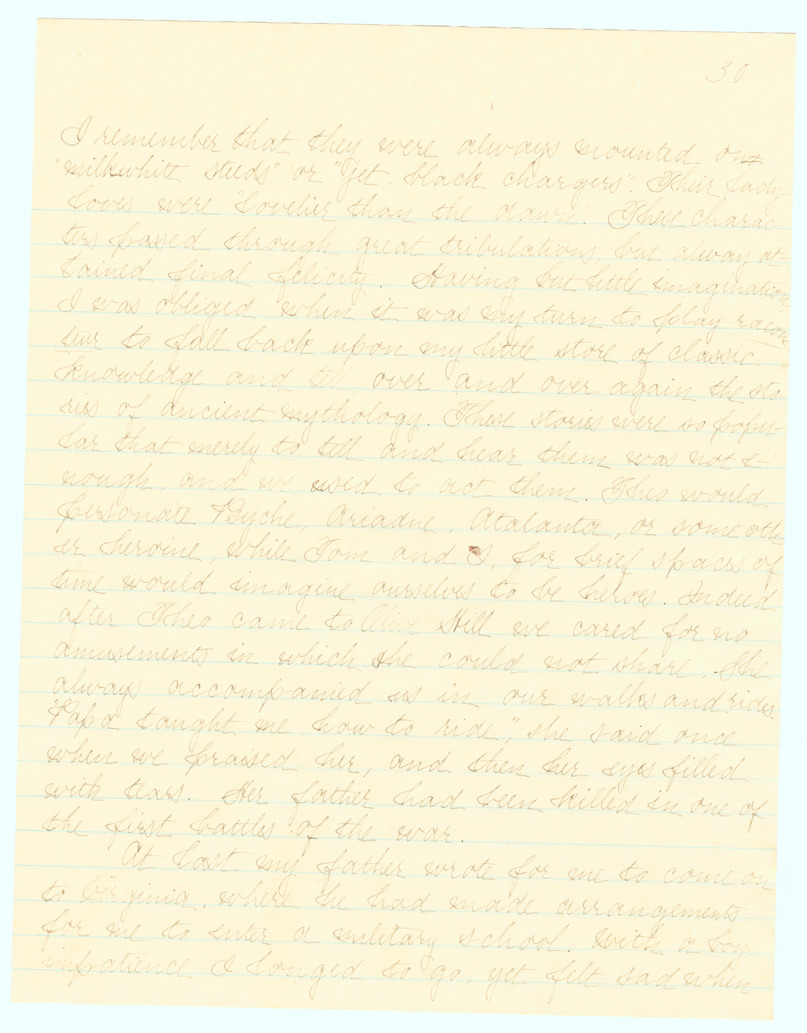 30
I remember that they were always mounted on
"milkwhite steeds" or "jet-black chargers". Their lady-
loves were "lovelier than the dawn". These charac-
ters passed through great tribulations but alway at-
tained final felicity. Having but little imagination,
I was obliged when it was my turn to play racon-
teur to fall back upon my little store of classic
knowledge and tell over and over again the sto
ries of ancient mythology. These stories were so popu-
lar that merely to tell and hear them was not e-
nough, and we used to act them. Theo would
personate Psyche, Ariadne, Atalanta, or some oth-
er heroine, while Tom and I, for brief spaces of
time would imagine ourselves to be heroes. Indeed
after Theo came to Olive Hill we cared for no
amusements in which she could not share. She
always accompanied us in our walks and rides.
"Papa taught me how to ride", she said once
when we praised her, and then her eyes filled
with tears. Her father had been killed in one of
the first battles of the war.
At last my father wrote for me to come on
to Virginia, where he had made arrangements
for me to enter a military school. With a boy's
impatience I longed to go, yet felt sad when